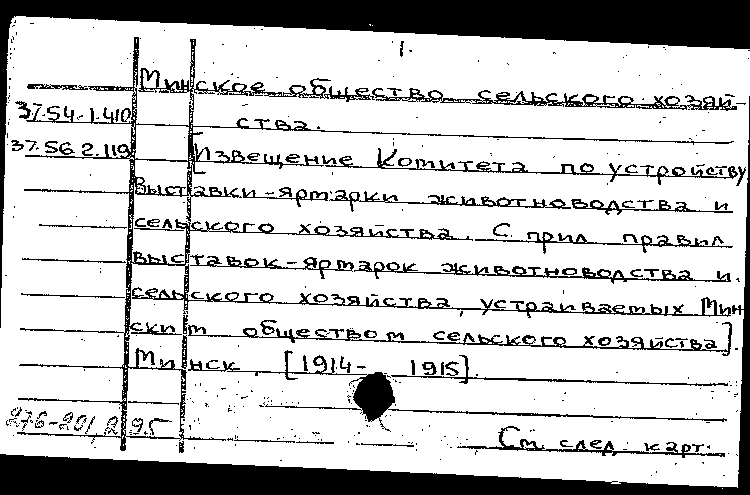 1.
Минское общество сельского хозяй-
37.54.1.410 ства.
37.56.2.119 [Извещение Комитета по устройству
выставки-ярмарки животноводства и
сельского хозяйства. С прил правил
выставок-ярмарок животноводства и
сельского хозяйства, устраиваемых Мин
ским обществом сельского хозяйства].
Минск. [1914- 1915].
См. след. карт.